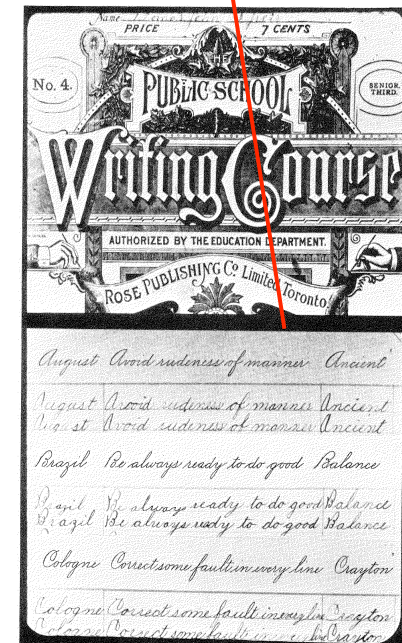 Name
PRICE 7 CENTS
No. 4.
THE
PUBLIC SCHOOL
SENIOR THIRD.
Writing Course
AUTHORIZED BY THE EDUCATION DEPARTMENT.
ROSE PUBLISHING Co. Limited Toronto.
August Avoid rudeness of manner Ancient
August Avoid rudeness of manner Ancient
August Avoid rudeness of manner Ancient
Brazil Be always ready to do good Balance
Brazil Be always ready to do good Balance
Brazil Be always ready to do good Balance
Cologne Correct some fault in every line Crayton
Cologne Correct some fault in every line Crayton
Cologne Correct some fault in every line Crayton